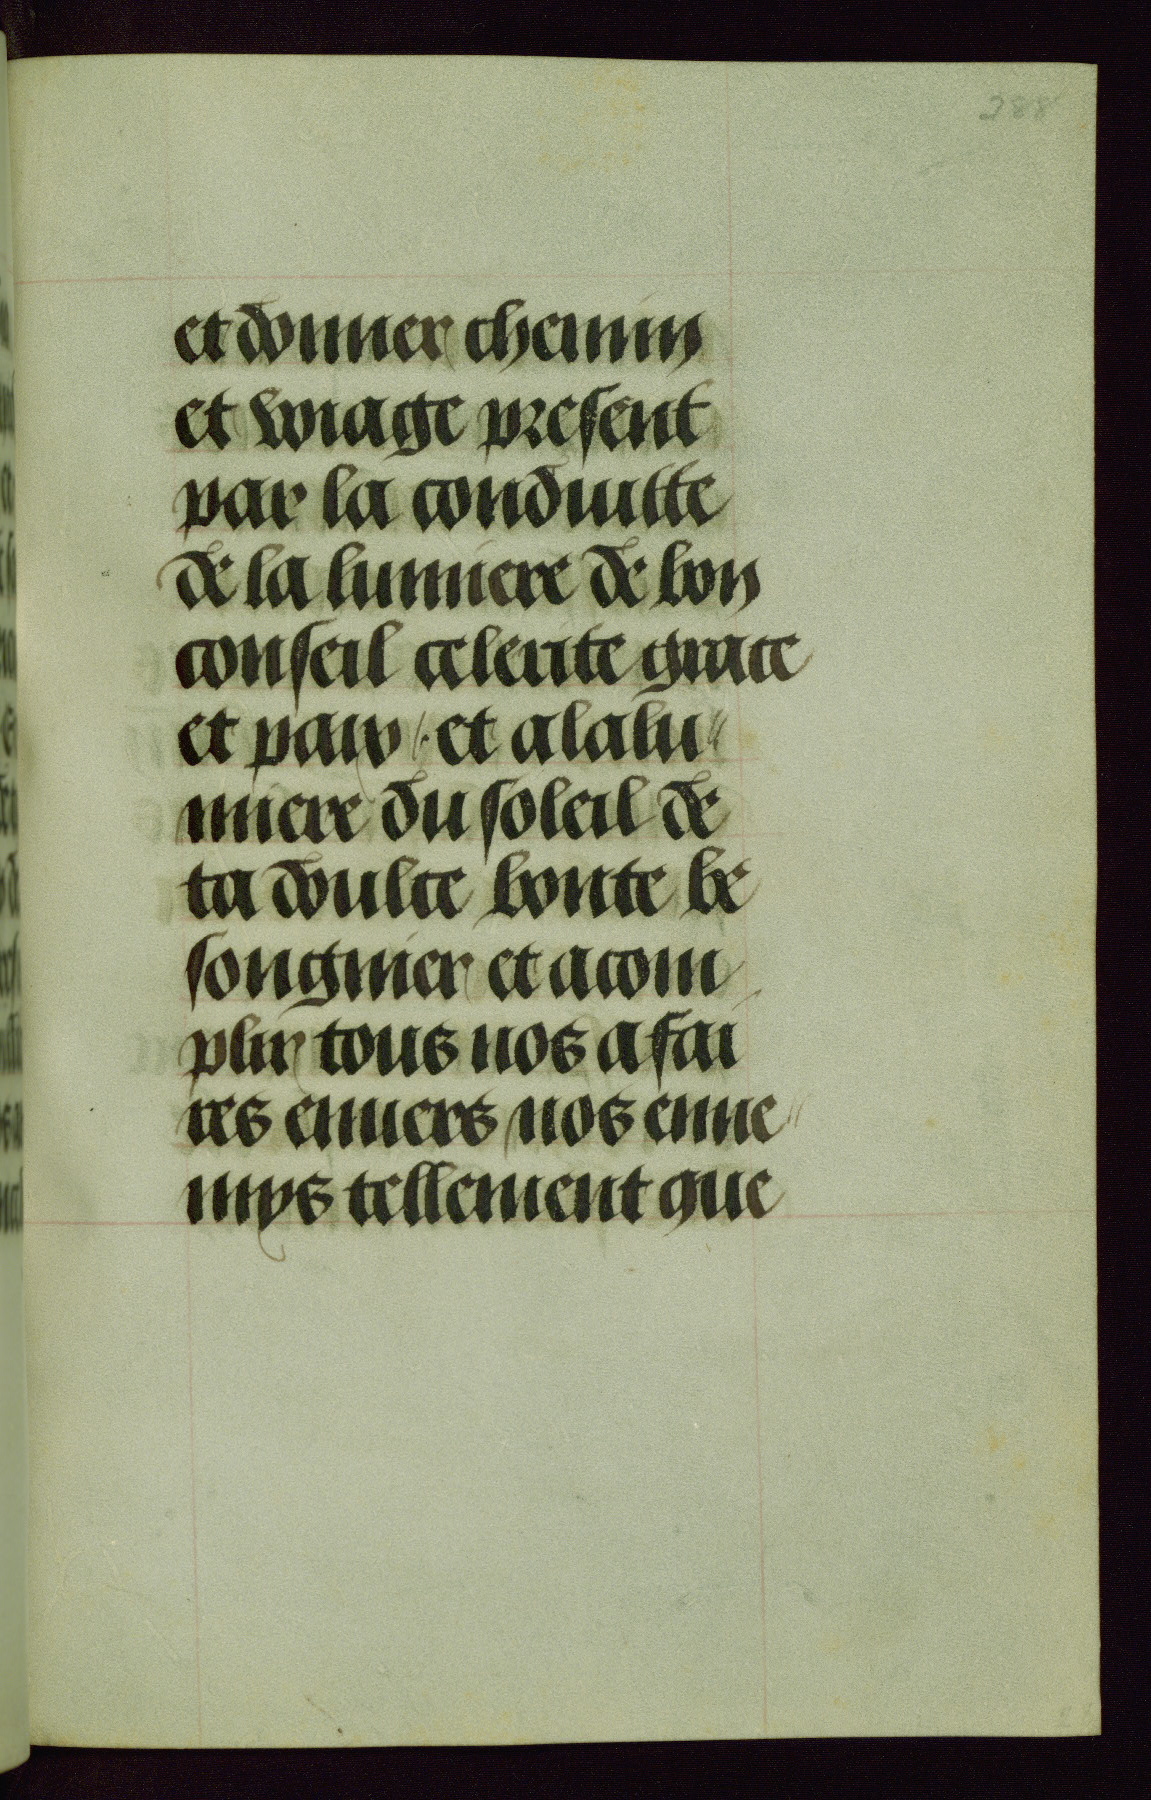 388
et donner chemin
et voiage present
par la conduitte
de la lumiere de bon
conseil celerite grace
et paix /. et a la lu〃
miere du soleil de
ta doulce bonte be
songnier et acom
plir tous nos afai
res enuers nos enne〃
mys tellement que